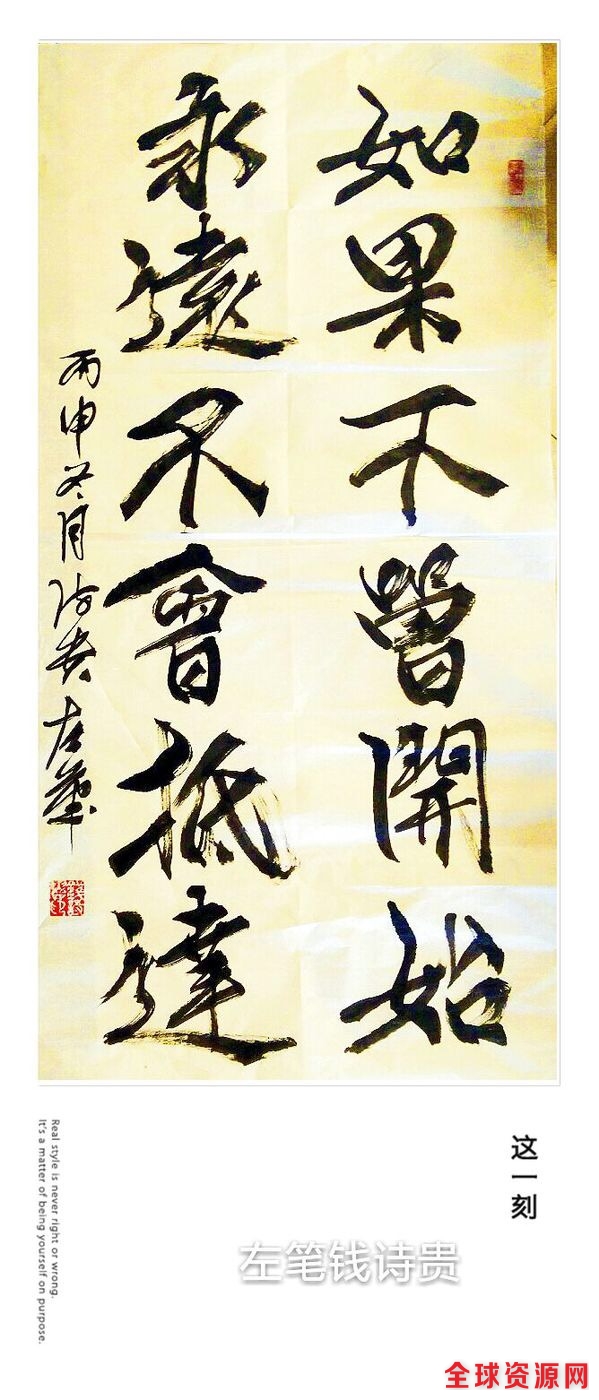 如果不曾開始
永遠不會抵達
丙申冬月诗贵左筆
这一刻
Real style is never right or wrong.
It's a matter of being yourself on purpose.
左笔钱诗贵
全球资源网